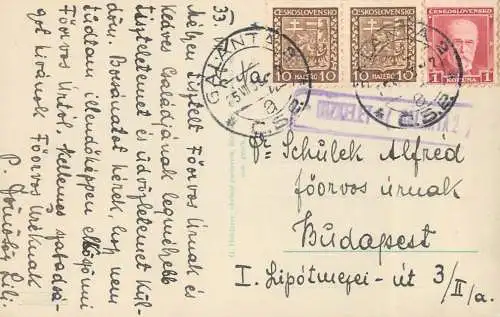 33.
Mélyen tisztelt Főorvos Úrnak és
Kedves Családjának legmélyebb
tiszteletemet és üdvözletemet kül-
döm. Bocsánatot kérek, hogy nem
tudtam illendőképpen elköszönni
Főorvos Úrtól. Kellemes szabadsá-
got kívánok Főorvos Úréknak
P. Lili.
ČESKOSLOVENSKO
10 HALÉŘŮ 10
ČESKOSLOVENSKO
10 HALÉŘŮ 10
ČESKOSLOVENSKO
1 KORUNA 1
GALANTA
Č.S.R.
GALANTA
Č.S.R.
Schulek Alfred
főorvos úrnak
Budapest
I. Lipótmezei-út 3/II/a.